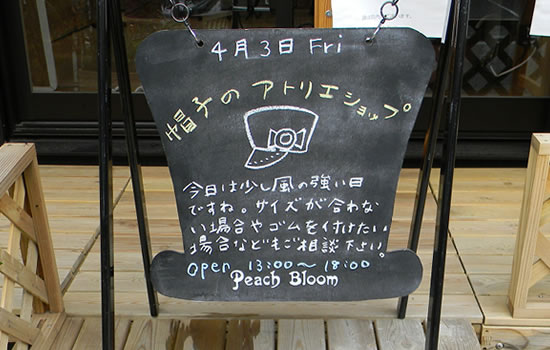 4月3日 Fri
帽子のアトリエショップ
今日は少し風の強い日
ですね。サイズが合わな
い場合やゴムを付けたい
場合などもご相談下さい。
open 13:00～18:00
Peach Bloom